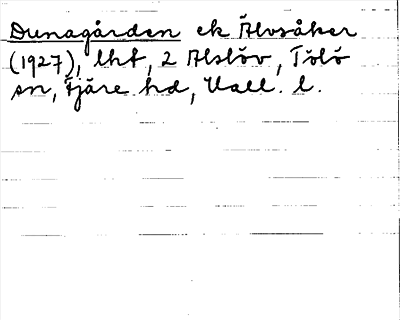 Dunagården ek Älvsåker
(1927), lht, 2 Alslöv, Tölö
sn, Fjäre hd, Hall. l.